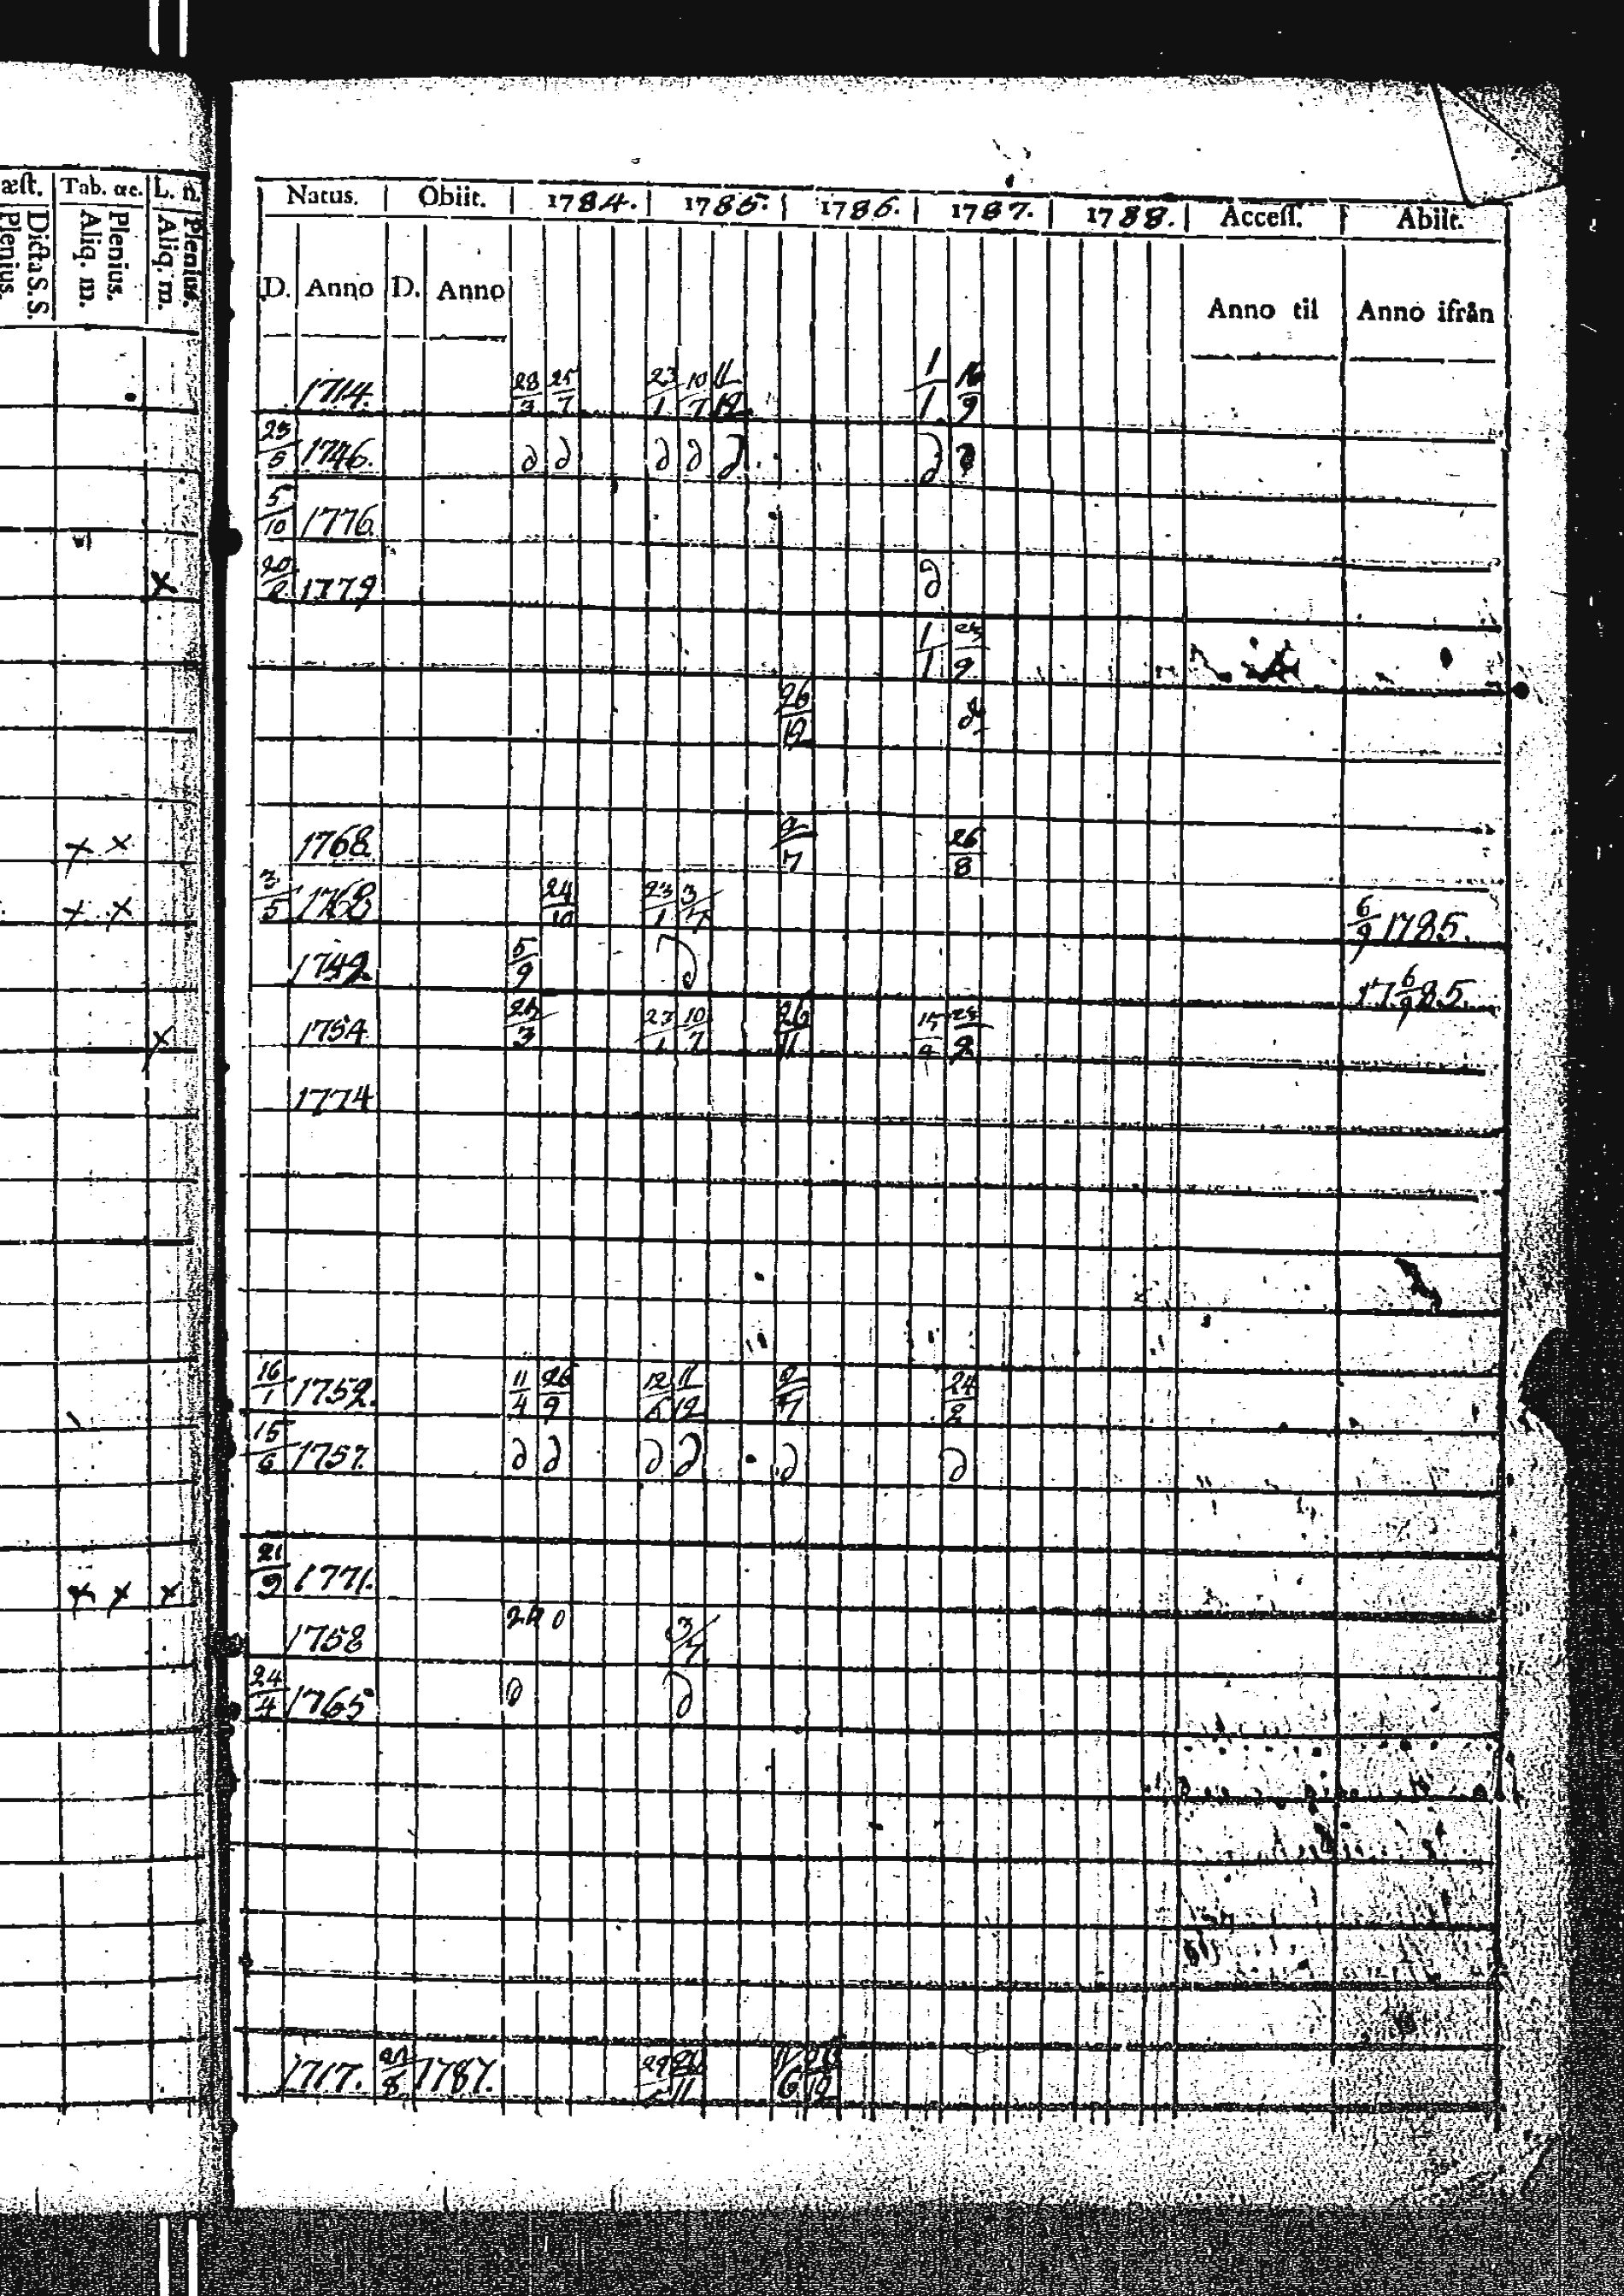 æſt. Tab. œc. L. n.
Dicta S. S. Plenius.
Plenius. Aliq. m.
Plenius. Aliq. m.
Natus. Obiit. 1784. 1785. 1786. 1787. 1788. Acceſſ. Abiit.
D. Anno D. Anno Anno til Anno ifrån
1714. 28/3 25/7 23/1 10/7 11/12 1/1 16/9
25/5 1746. д д д д д д
5/10 1776.
1779 д
1/1 9
26/12
1768. 7 26/8
3/5 1768 24/10 23/1 3/7 6/9 1785.
1742 5/9 д 17 6/9 85.
1754 3 23/1 10/7 26/11 9
1774
16/1 1752. 11/4 26/9 11/12 24/2
15/6 1757. д д д д д д
21/9 1771.
1758 3/7
24/4 1765 д
1717. 1787. 11